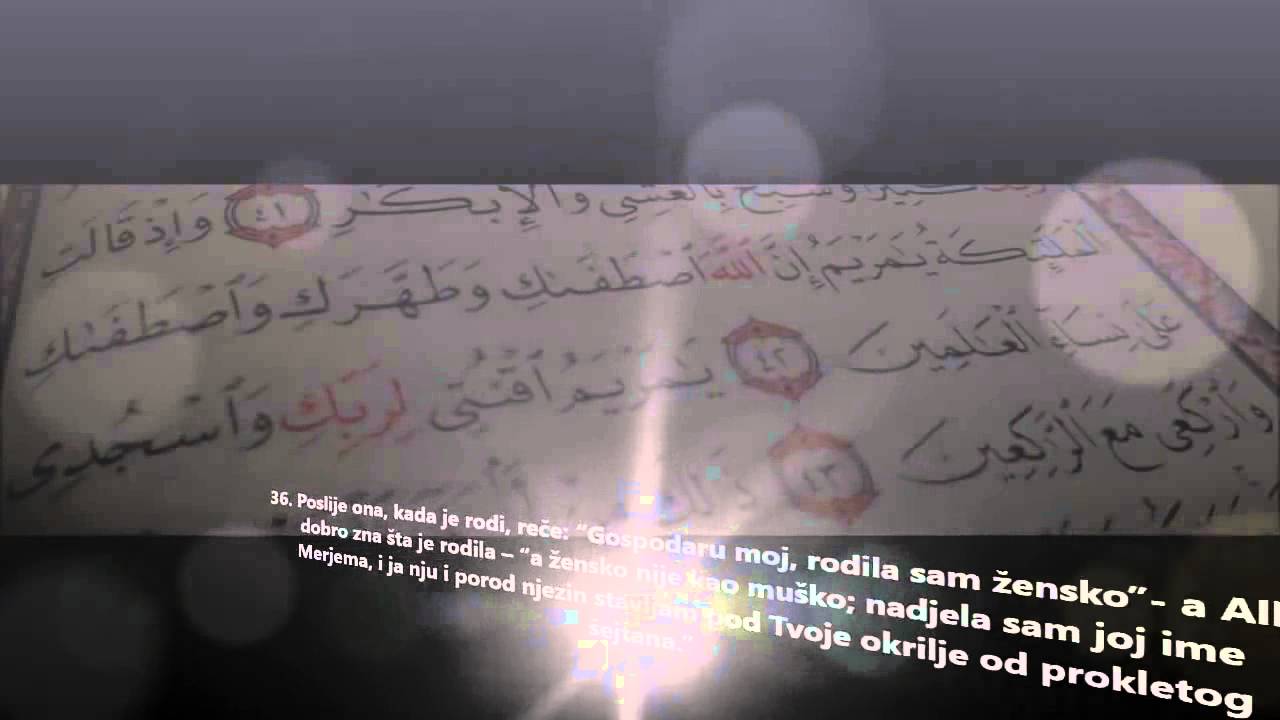 كَثِيرًا وَسَبِّحْ بِالْعَشِيِّ وَالْإِبْكَٰرِ ٤١ وَإِذْ قَالَتِ
الْمَلَٰٓئِكَةُ يَٰمَرْيَمُ إِنَّ اللَّهَ ٱصْطَفَىٰكِ وَطَهَّرَكِ وَٱصْطَفَىٰكِ
عَلَىٰ نِسَآءِ الْعَٰلَمِينَ ٤٢ يَٰمَرْيَمُ ٱقْنُتِي لِرَبِّكِ وَٱسْجُدِي
وَٱرْكَعِي مَعَ الرَّٰكِعِينَ ٤٣ ذَٰلِكَ
36. Poslije ona, kada je rodi, reče: “Gospodaru moj, rodila sam žensko”- a All
dobro zna šta je rodila – “a žensko nije kao muško; nadjela sam joj ime
Merjema, i ja nju i porod njezin stavljam pod Tvoje okrilje od prokletog
šejtana.”